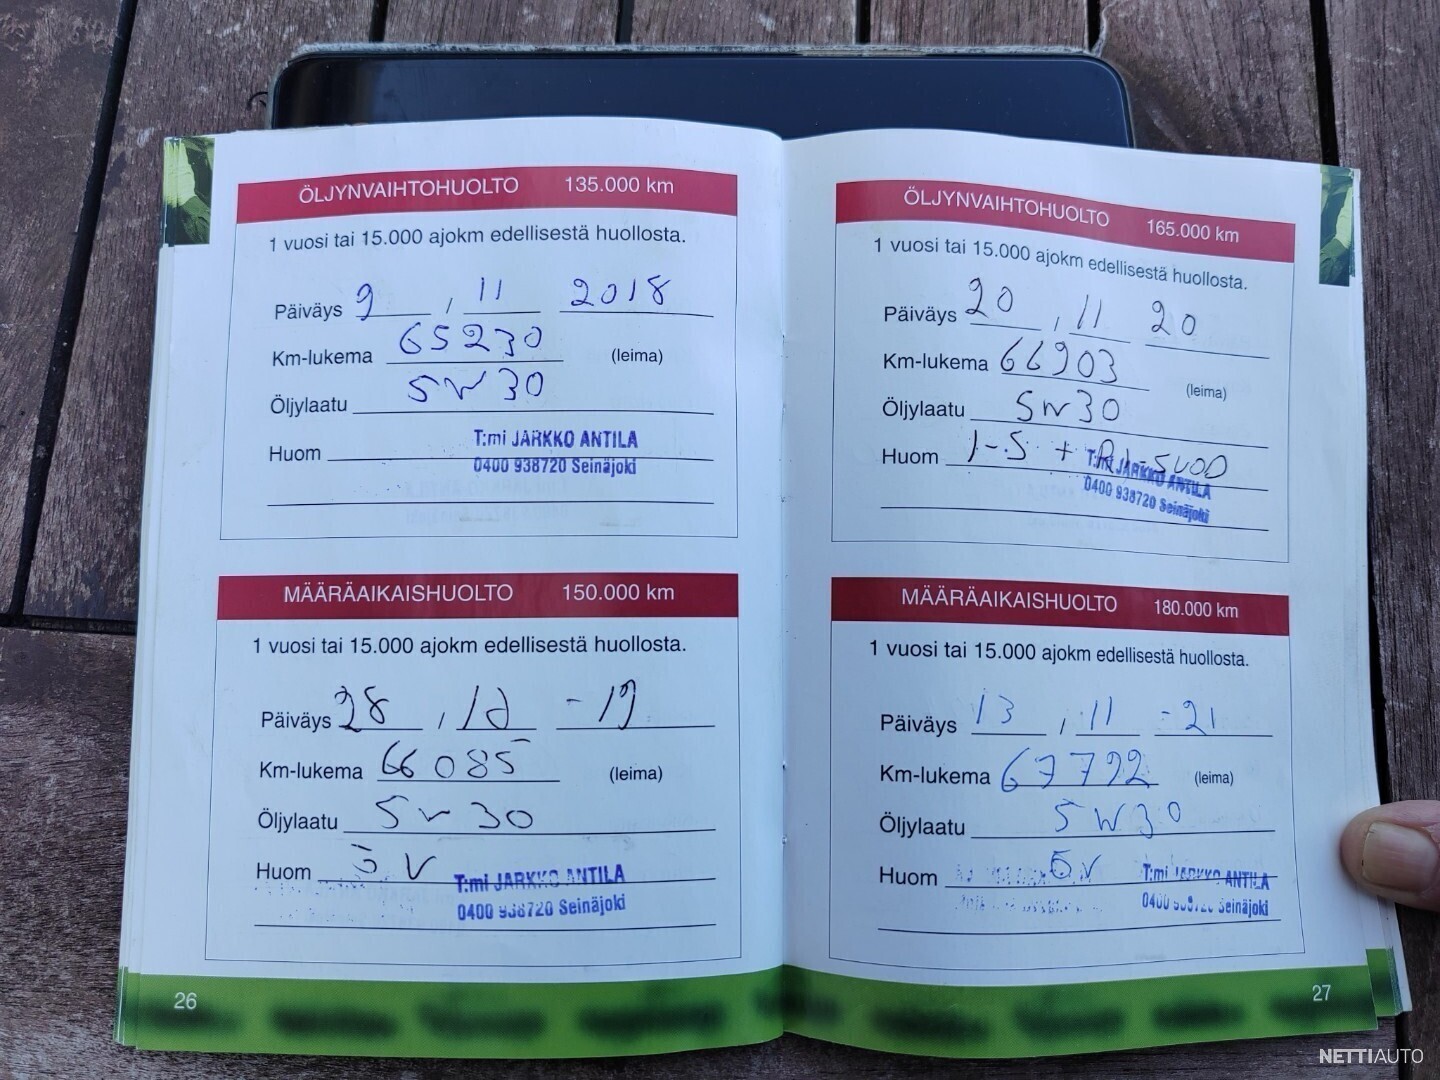 ÖLJYNVAIHTOHUOLTO 135.000 km
1 vuosi tai 15.000 ajokm edellisestä huollosta.
Päiväys 9 , 11 2018
Km-lukema 65230 (leima)
Öljylaatu 5W30
Huom T:mi JARKKO ANTILA
0400 938720 Seinäjoki
MÄÄRÄAIKAISHUOLTO 150.000 km
1 vuosi tai 15.000 ajokm edellisestä huollosta.
Päiväys 28 , -19
Km-lukema 66085 (leima)
Öljylaatu 5w30
Huom ÖV T:mi JARKKO ANTILA
0400 938720 Seinäjoki
26
ÖLJYNVAIHTOHUOLTO 165.000 km
1 vuosi tai 15.000 ajokm edellisestä huollosta.
Päiväys 20 , 11 20
Km-lukema 66903 (leima)
Öljylaatu 5w30
Huom 1-S + SUOD
T:mi JARKKO ANTILA
0400 938720 Seinäjoki
MÄÄRÄAIKAISHUOLTO 180.000 km
1 vuosi tai 15.000 ajokm edellisestä huollosta.
Päiväys 13 , 11 -21
Km-lukema 67792 (leima)
Öljylaatu 5W30
Huom ÖV T:mi JARKKO ANTILA
0400 938720 Seinäjoki
27
NETTIAUTO